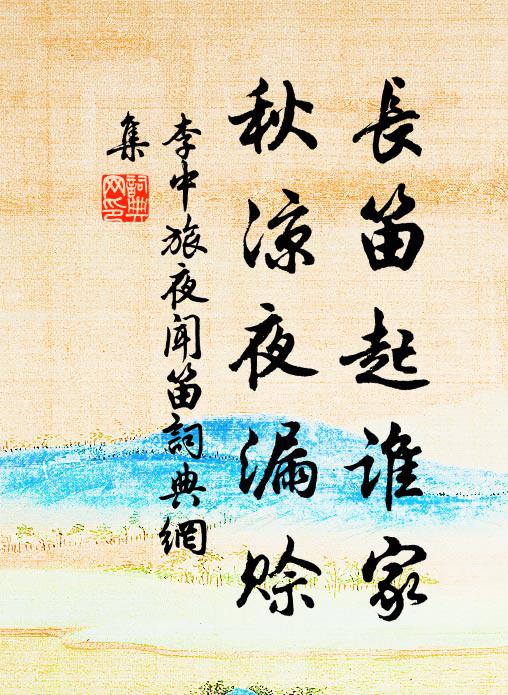 長笛起誰家
秋涼夜漏賒
李中旅夜聞笛詞典網
集
詞典網印